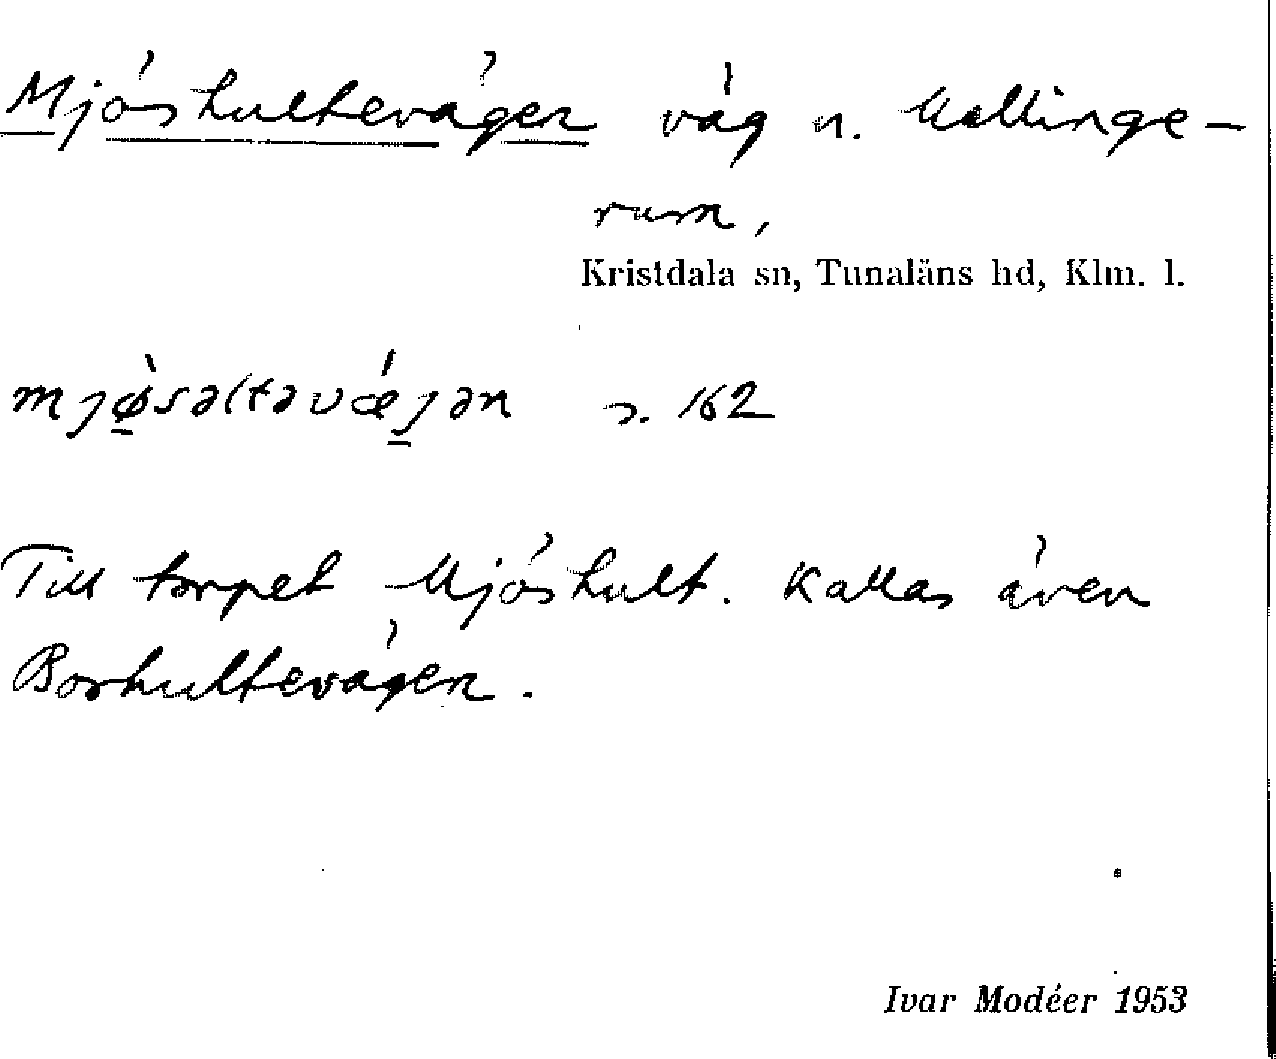 Mjöshultevägen väg n. Mallinge-
rum,
Kristdala sn, Tunaläns hd, Klm. l.
mjø̀səltəvǽjən s. 162
Till torpet Mjöshult. Kallas även
Borhultevägen.
Ivar Modéer 1953